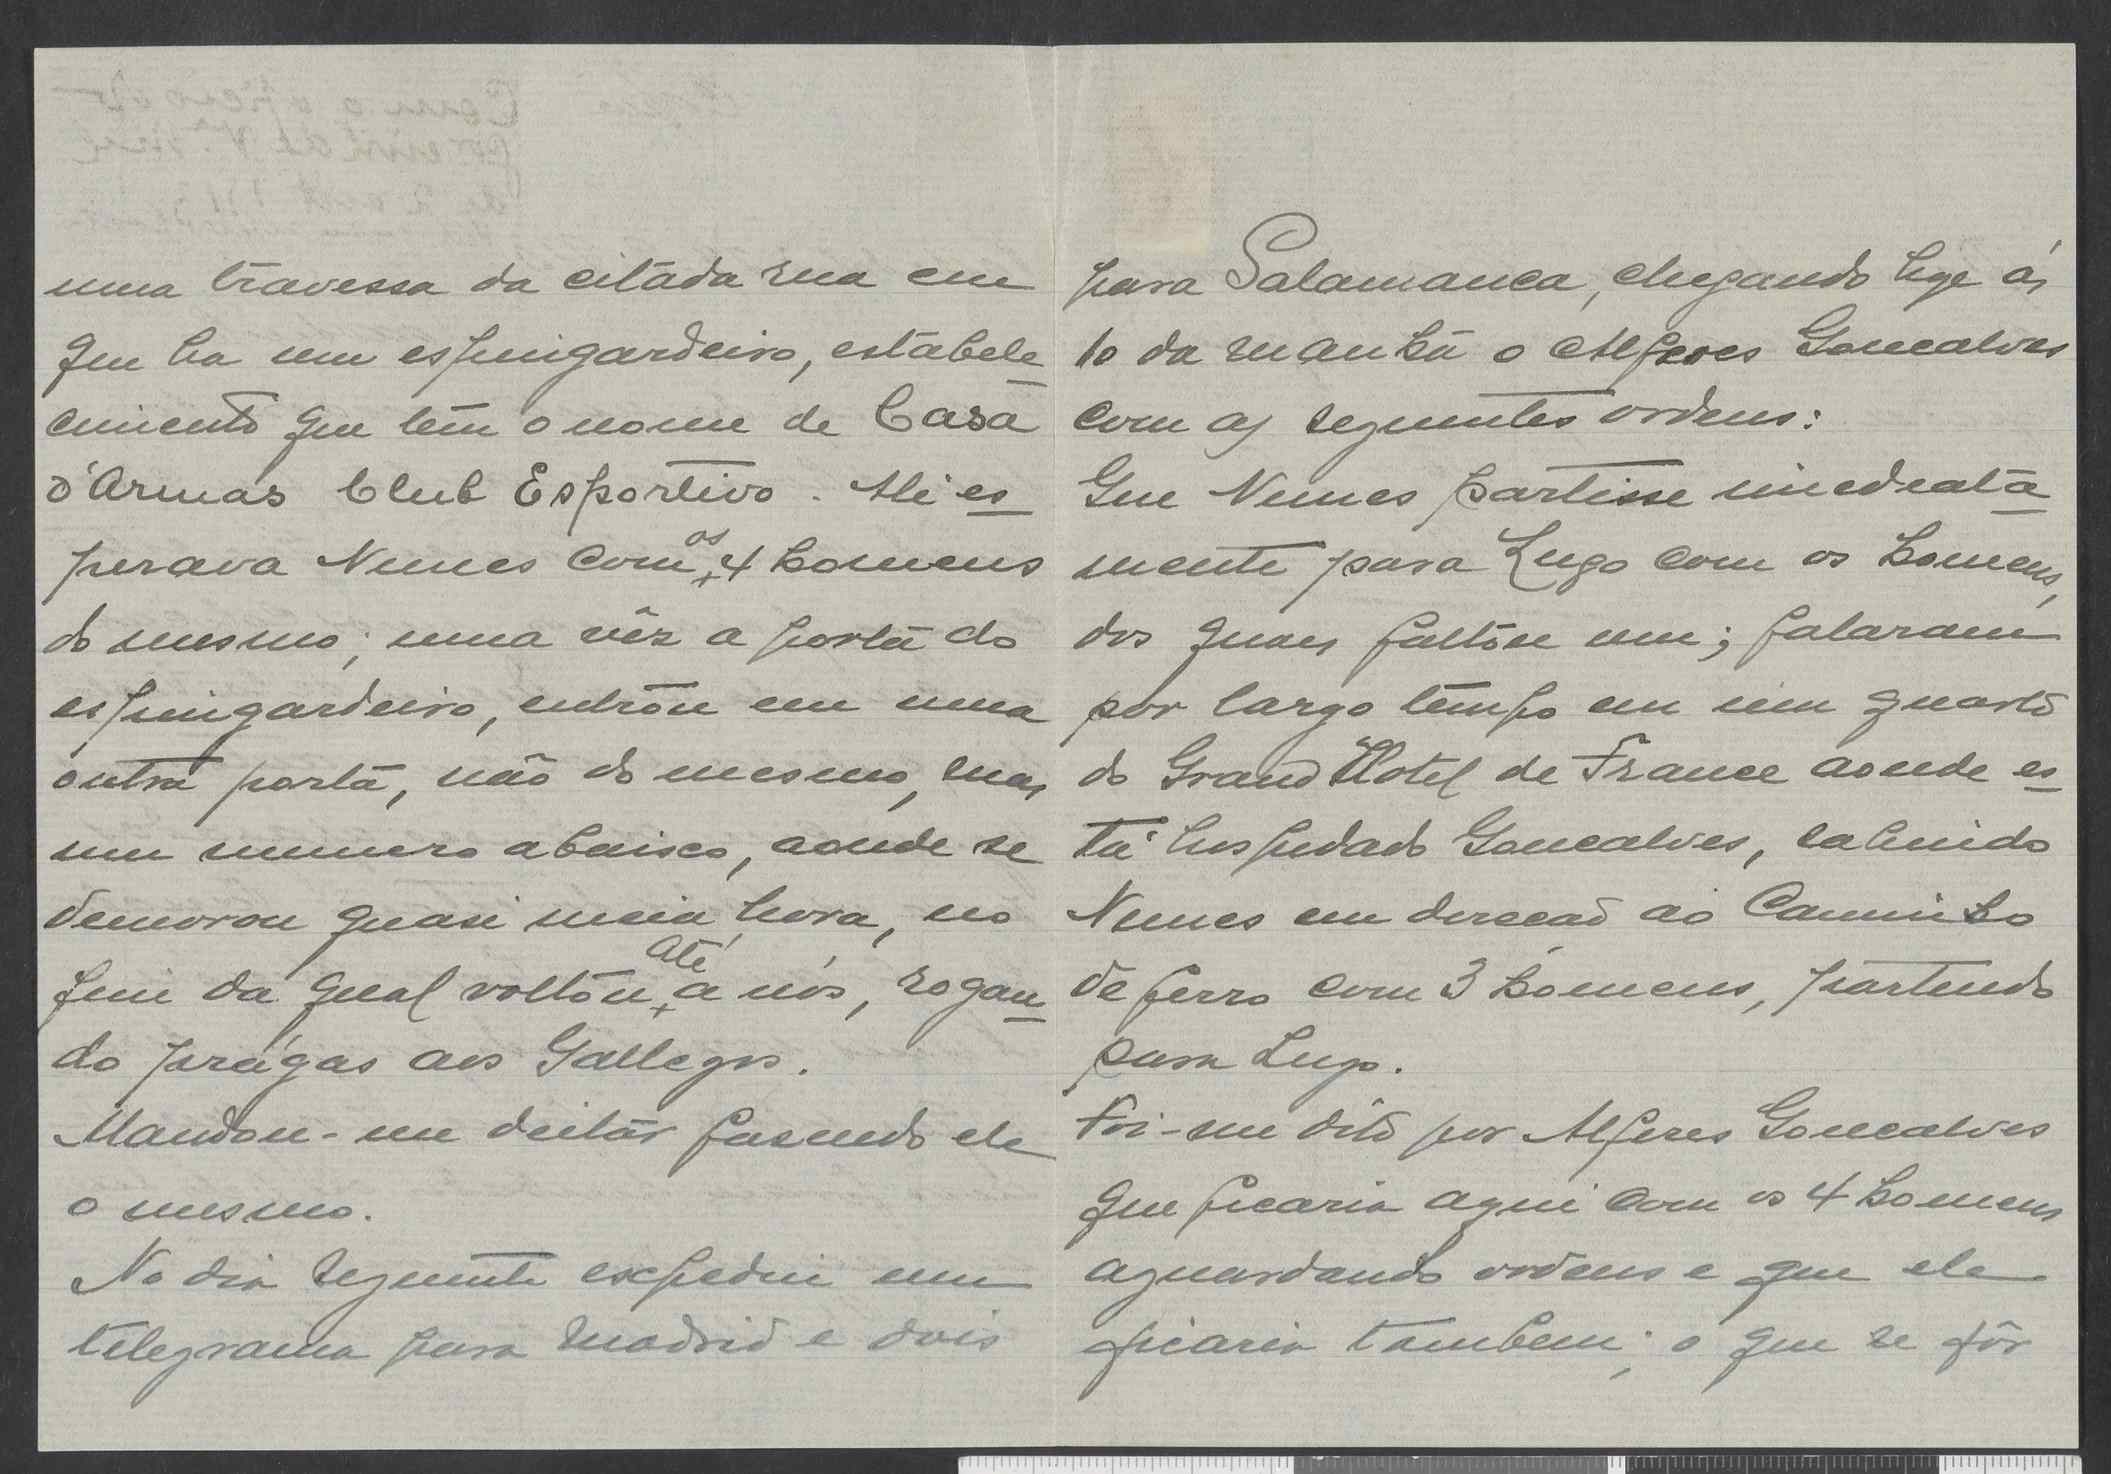 uma travessa da citada rua em
que ha um espingardeiro, estabele
cimento que tem o nome de Casa
d'Armas Club Esportivo. Ali es
perava Nunes com os 4 homens
do mesmo; uma vêz a porta do
espingardeiro, entrou em uma
outra porta, não do mesmo, mas
um numero abaixo, aonde se
demorou quasi meia hora, no
fim da qual voltou até a nós, rogan
do prágas aos Gallegos.
Mandou-me deitár fasendo ele
o mesmo.
No dia seguinte expediu um
telegrama para Madrid e dois
para Salamanca, chegando hoje ás
10 da manhã o Alferes Goncalves
com as seguintes ordens:
Que Nunes partisse imediata
mente para Lugo com os homens,
dos quaes faltou um; falaram
por largo tempo em um quarto
do Grand Hotel de France aonde es
tá hospedado Goncalves, sahindo
Nunes em direcão ao Caminho
de ferro com 3 homens, partindo
para Lugo.
Foi-me dito por Alferes Goncalves
que ficaria aqui com os 4 homens
aguardando ordens e que ele
ficaria tambem; o que se fôr